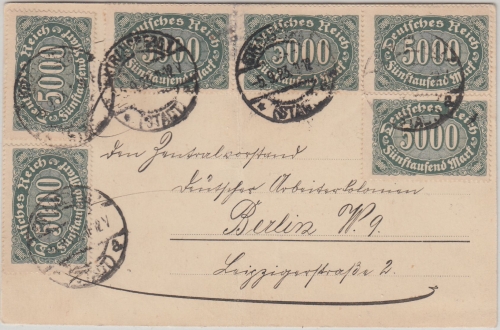 Deutsches Reich
5000
Fünftausend Mark
Deutsches Reich
5000
Fünftausend Mark
Deutsches Reich
5000
Fünftausend Mark
Deutsches Reich
5000
Fünftausend Mark
Deutsches Reich
5000
Fünftausend Mark
Deutsches Reich
5000
Fünftausend Mark
(STAR)
(STAR)
den Zentralvorstand
Deutscher Arbeiterkolonien
Berlin W. 9.
Leipzigerstraße 2.